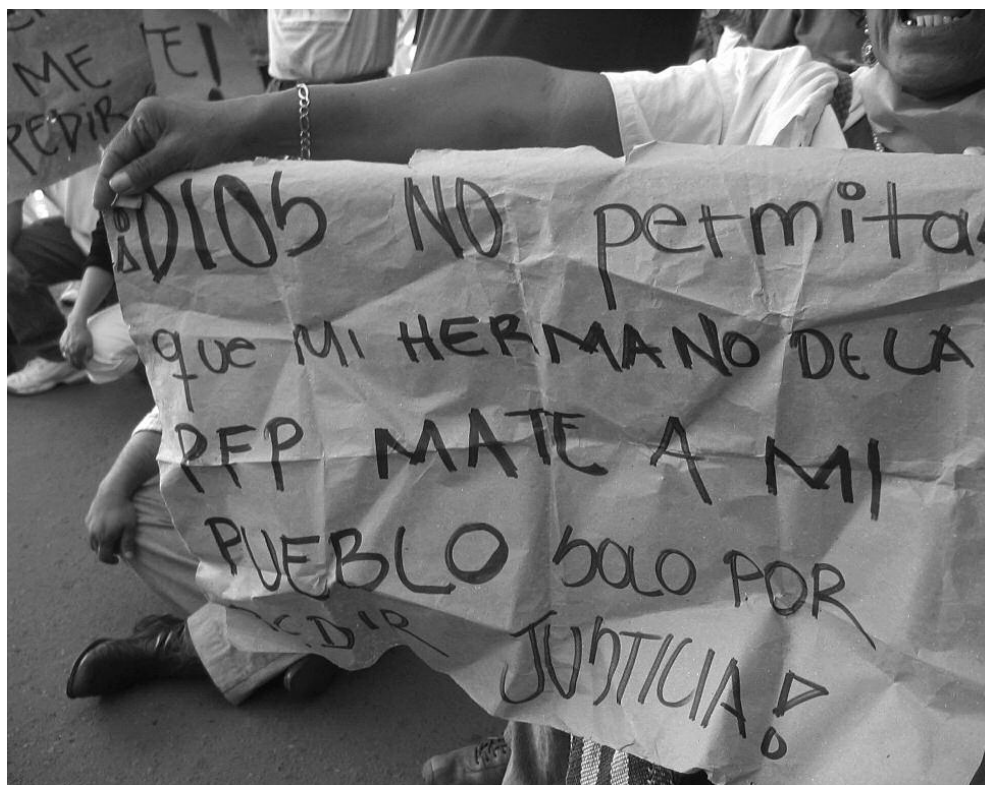 ME
PEDIR
TE!
¡DIOS NO permita
que MI HERMANO DE LA
PFP MATE A MI
PUEBLO SOLO POR
PEDIR JUSTICIA!